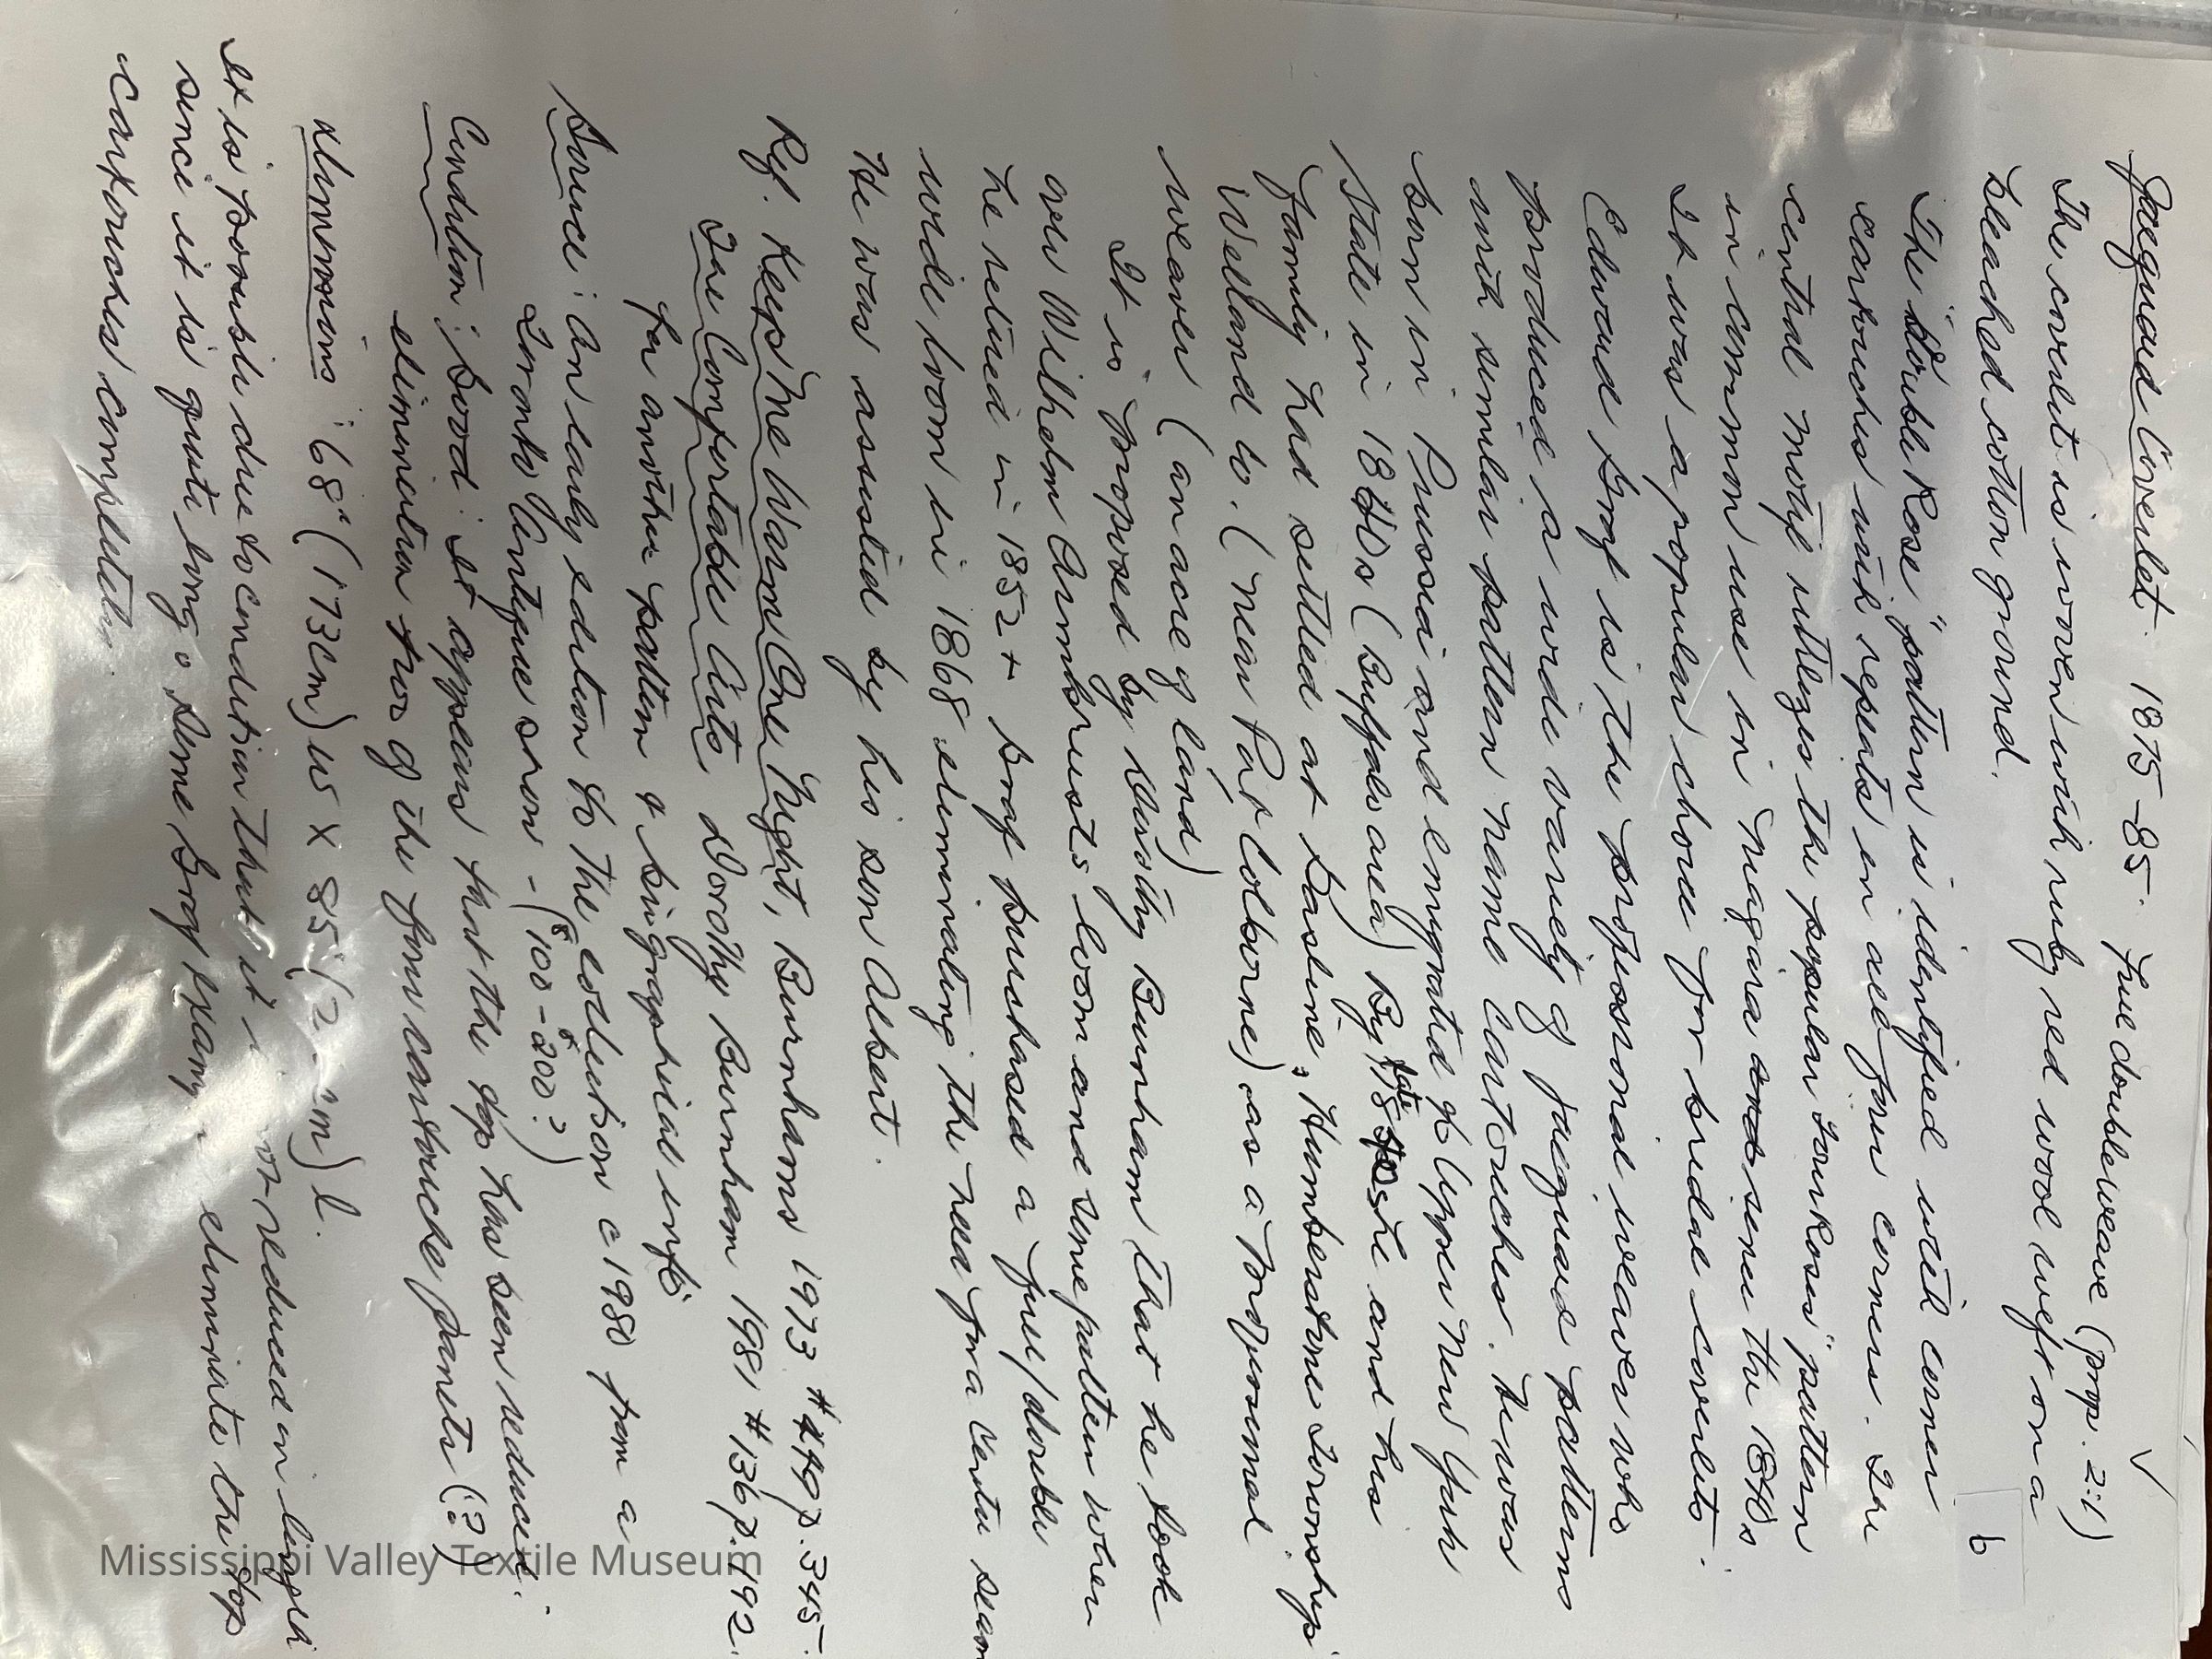 ✓
Jacquard Coverlet 1875-85. full doubleweave (prop. 2:1)
6
The coverlet is woven with ruby red wool weft on a
bleached cotton ground.
The "Double Rose" pattern is identified with corner
cartouches with repeats in all four corners. The
central motif utilizes the popular "Four Roses" pattern
in common use in Niagara and since the 1840s
It was a popular choice for bridal coverlets.
Edward Graf is the professional weaver who
produced a wide variety of jacquard patterns
with similar pattern name cartouches. He was
born in Prussia and emigrated to Upper New York
State in 1840s (Buffalo area) By late 1850s he and his
family had settled at Gasline, Humberstone Township
Welland Co. (near Port Colborne) as a professional
weaver (an acre of land)
It is proposed by Dorothy Burnham that he took
over Wilhelm Armbrusts loom and some pattern when
he retired in 1852 + Graf purchased a full/double
wide loom in 1868 eliminating the need for a centre seam
He was assisted by his son Albert.
Ref. Keep Me Warm One Night, Burnhams 1973 # 449 p.345.
The Comfortable Arts Dorothy Burnham 1981 #136 p.192.
for another pattern & biographical info
Source: An early edition to the collection c 1980 from a
Toronto Antique show - ($100-$200?)
Condition: Good: It appears that the top has been reduced:
elimination two of the four cartouche panels (?)
Dimensions: 68" (173cm) w x 85 (2 cm) l.
It is possible due to condition that it reduced in length
since it is quite long. Some Graf eliminate the top
cartouches completely.
Mississippi Valley Textile Museum